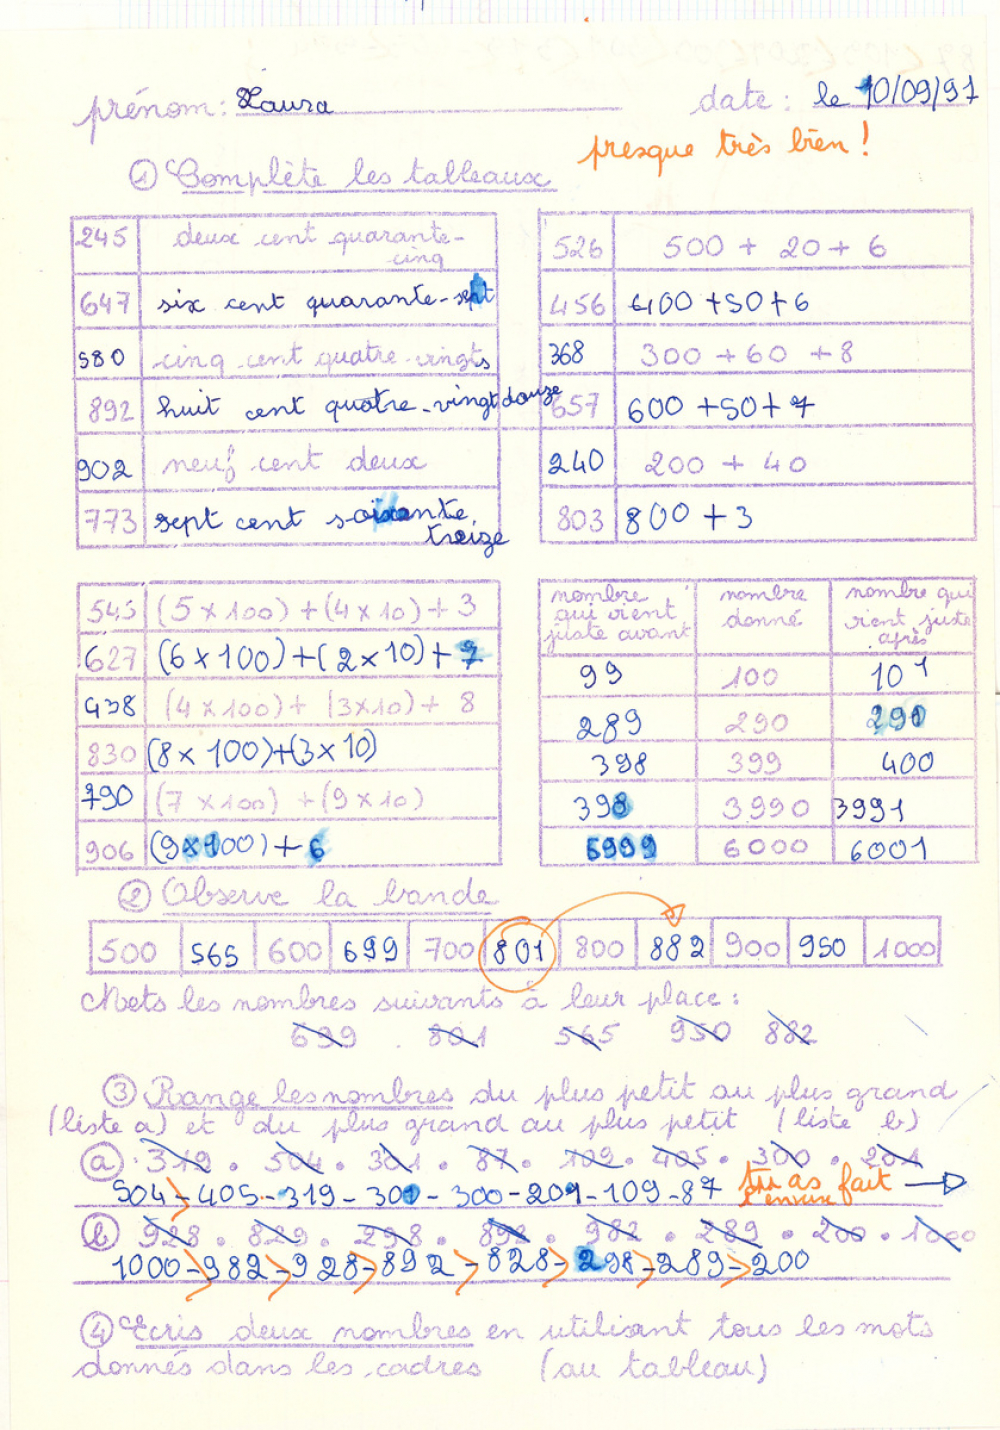 prénom: Laura date: le 10/09/91
presque très bien !
① Complète les tableaux
245 deux cent quarante-
cinq
647 six cent quarante-sept
580 cinq cent quatre-vingts
892 huit cent quatre-vingt douze
902 neuf cent deux
773 sept cent soixante
treize
526 500 + 20 + 6
456 400 + 50 + 6
368 300 + 60 + 8
657 600 + 50 + 7
240 200 + 40
803 800 + 3
543 (5 x 100) + (4 x 10) + 3
627 (6 x 100) + (2 x 10) + 7
438 (4 x 100) + (3 x 10) + 8
830 (8 x 100) + (3 x 10)
790 (7 x 100) + (9 x 10)
906 (9 x 100) + 6
nombre nombre nombre qui
qui vient donné vient juste
juste avant après
99 100 101
289 290
398 399 400
398 3990 3991
6000 6001
② Observe la bande
500 565 600 699 700 801 800 882 900 950 1000
Mets les nombres suivants à leur place :
699 801 565 950 882
③ Range les nombres du plus petit au plus grand
(liste a) et du plus grand au plus petit (liste b)
ⓐ 319 . 504 . 301 . 87 . 109 . 405 . 300 . 201
504 - 405 - 319 - 301 - 300 - 201 - 109 - 87 tu as fait
l'envers
ⓑ 928 . 829 . 298 . 892 . 982 . 289 . 200 . 1000
1000 - 982 - 928 - 892 - 828 - 298 - 289 - 200
④ Ecris deux nombres en utilisant tous les mots
donnés dans les cadres (au tableau)